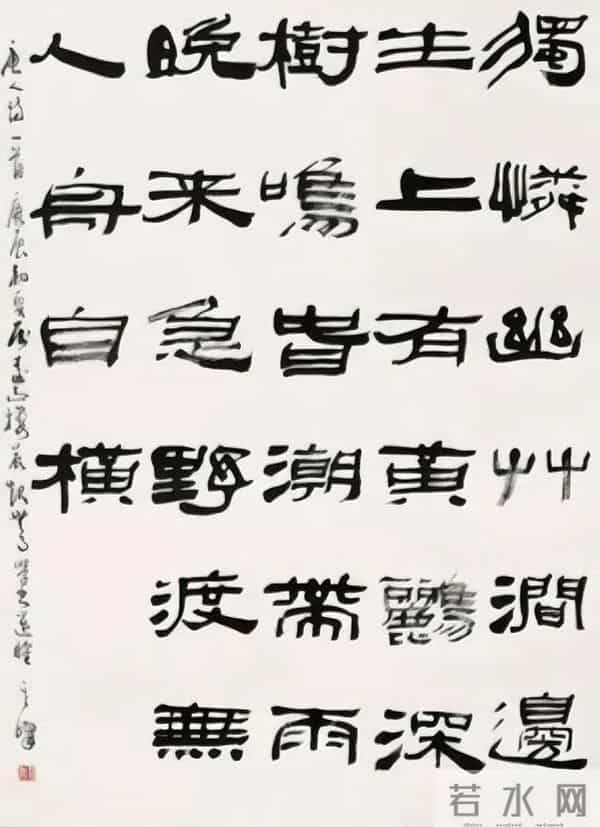 獨憐幽艸澗邊
生上有黃鸝深
樹鳴旾潮帶雨
晚来急野渡無
人舟自橫
唐人詩一首 庚辰初夏
若水网